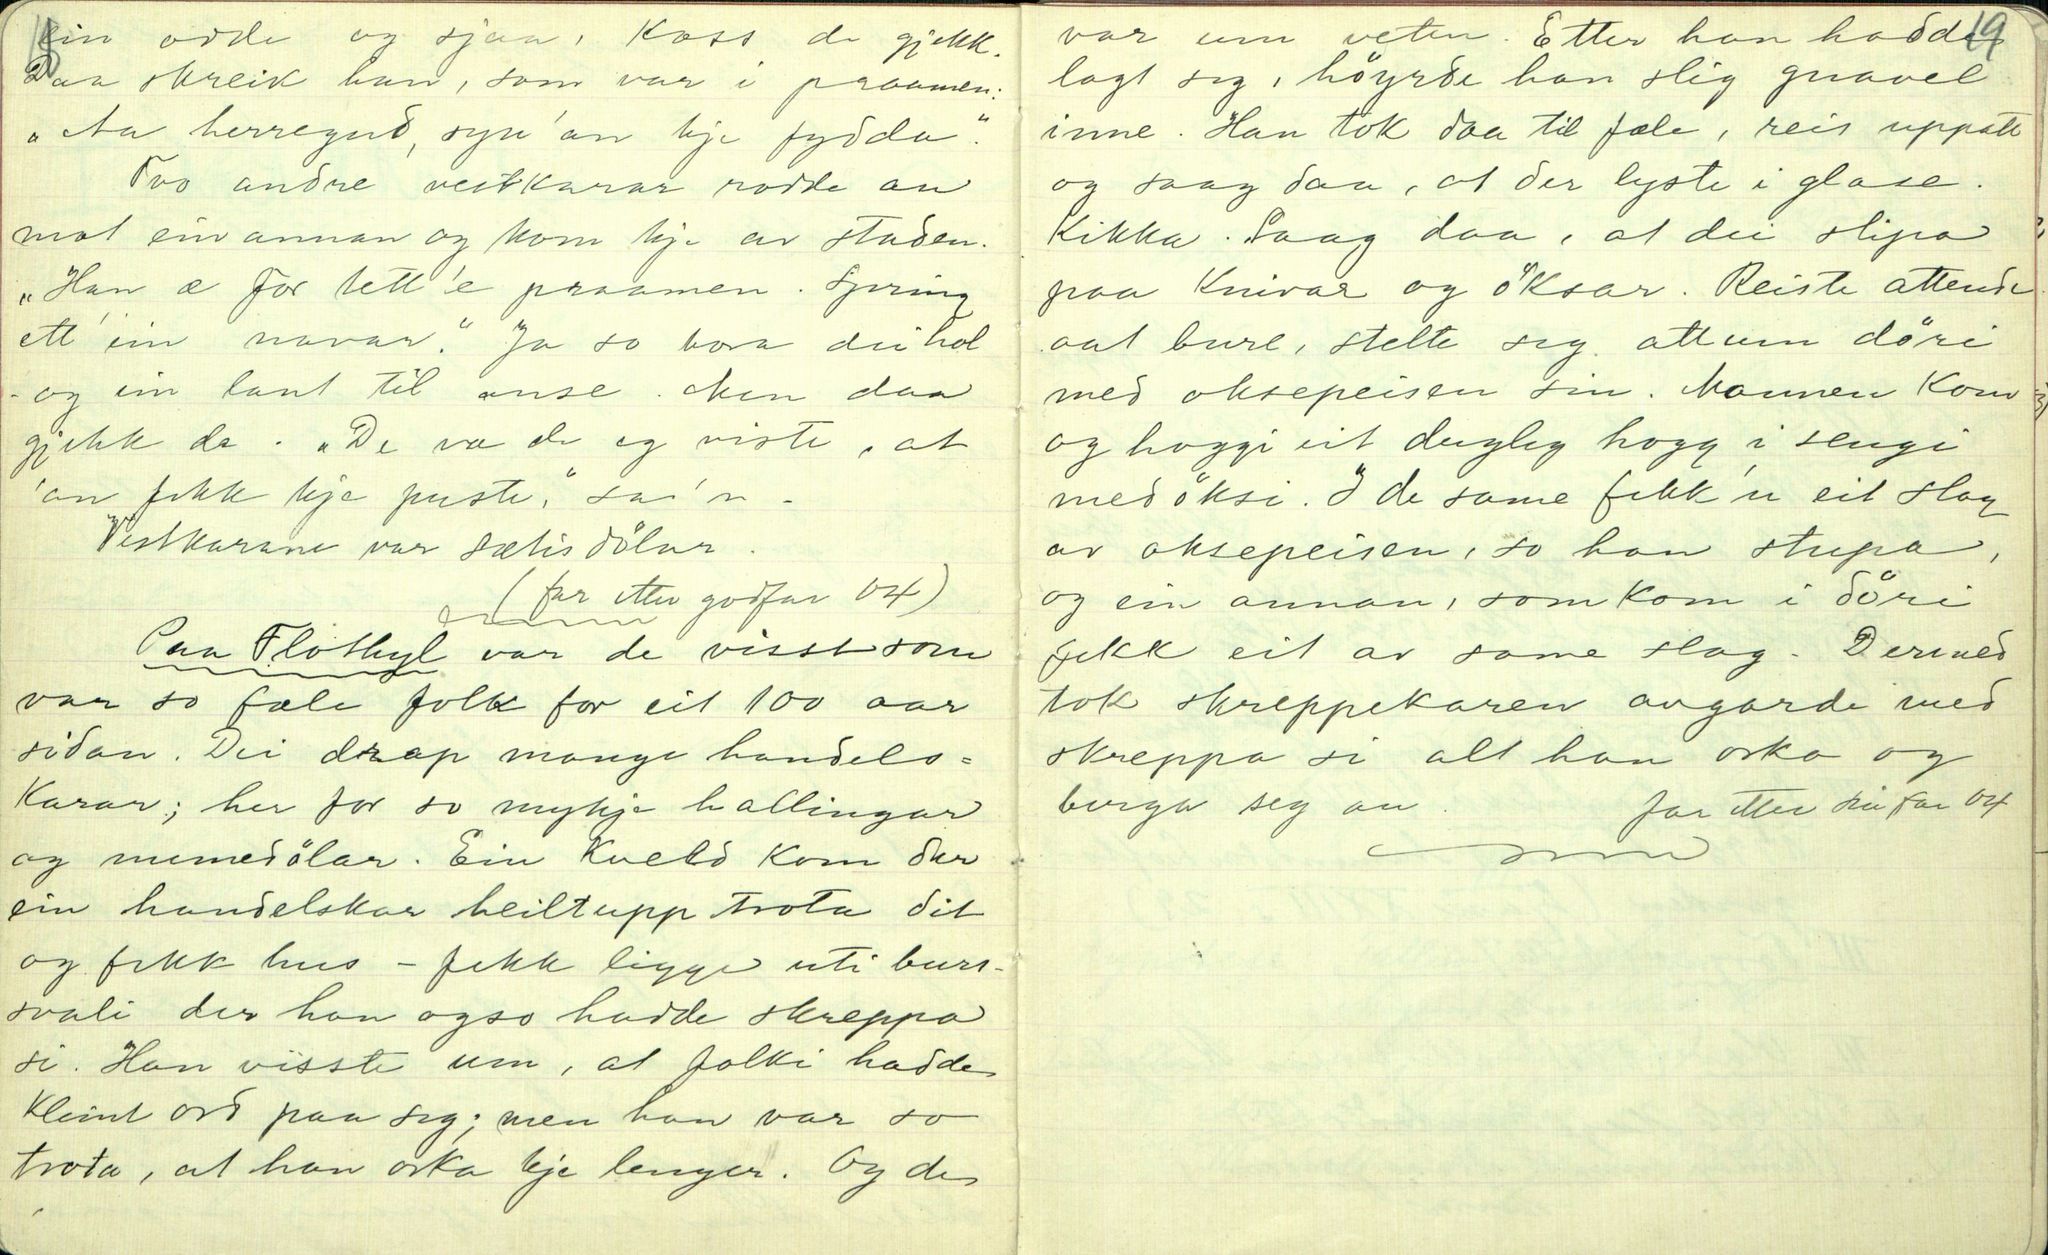 ein odde og sjaa, koss de gjekk.
Daa skreik han, som var i praamen:
"Aa herregud, syn'an kje fydda".
Tvo andre vestkarar rodde an
mot ein annan og kom kje av staden.
"Han æ for tett'e praamen. Spring
ett'ein navar." Ja so bora dei hol
og ein lant til anse. Men daa
gjekk de. "De va de eg viste, at
'an fekk kje puste," sa'n -
Vestkarane var sætisdölar.
(far etter godfar 04)
Paa Flothyl var de visst som
var so fæle folk for eit 100 aar
sidan. Dei drap mange handels=
karar; her for so mykje hallingar
og numedölar. Ein kveld kom der
ein handelskar heiltupp trota dit
og fekk hus - fekk ligge uti burs-
svali der han ogso hadde skreppa
si. Han visste um, at folki hadde
kleint ord paa seg; men han var so
trota, at han orka kje lenger. Og de
19
var um veten. Etter han hadde
lagt seg, höyrde han slig gnavel
inne. Han tok daa til fæle, reis uppatt
og saag daa, at der lyste i glase.
Kikka. Saag daa, at dei slipa
paa knivar og öksar. Reiste attende
aat bure, stelte seg attum döri
med oksepeisen sin. Mannen kom
og hoggi eit dugleg hogg i sengi
med öksi. I de same fekk'n eit slag
av oksepeisen, so han stupa,
og ein annan, som kom i döri
fekk eit av same slag. Dermed
tok skreppekaren avgarde med
skreppa si alt han orka og
berga seg an. far etter sin far 04